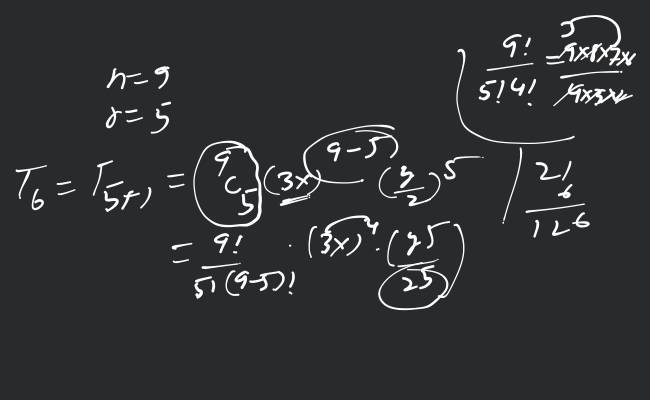 n=9
r=5
T₆ = T₅₊₁ = ⁹C₅ (3x)⁹⁻⁵ (y/2)⁵
= 9!/5!(9-5)! · (3x)⁴ · (y5/25)
9!/5!4! = 9×8×7×
21
6
126